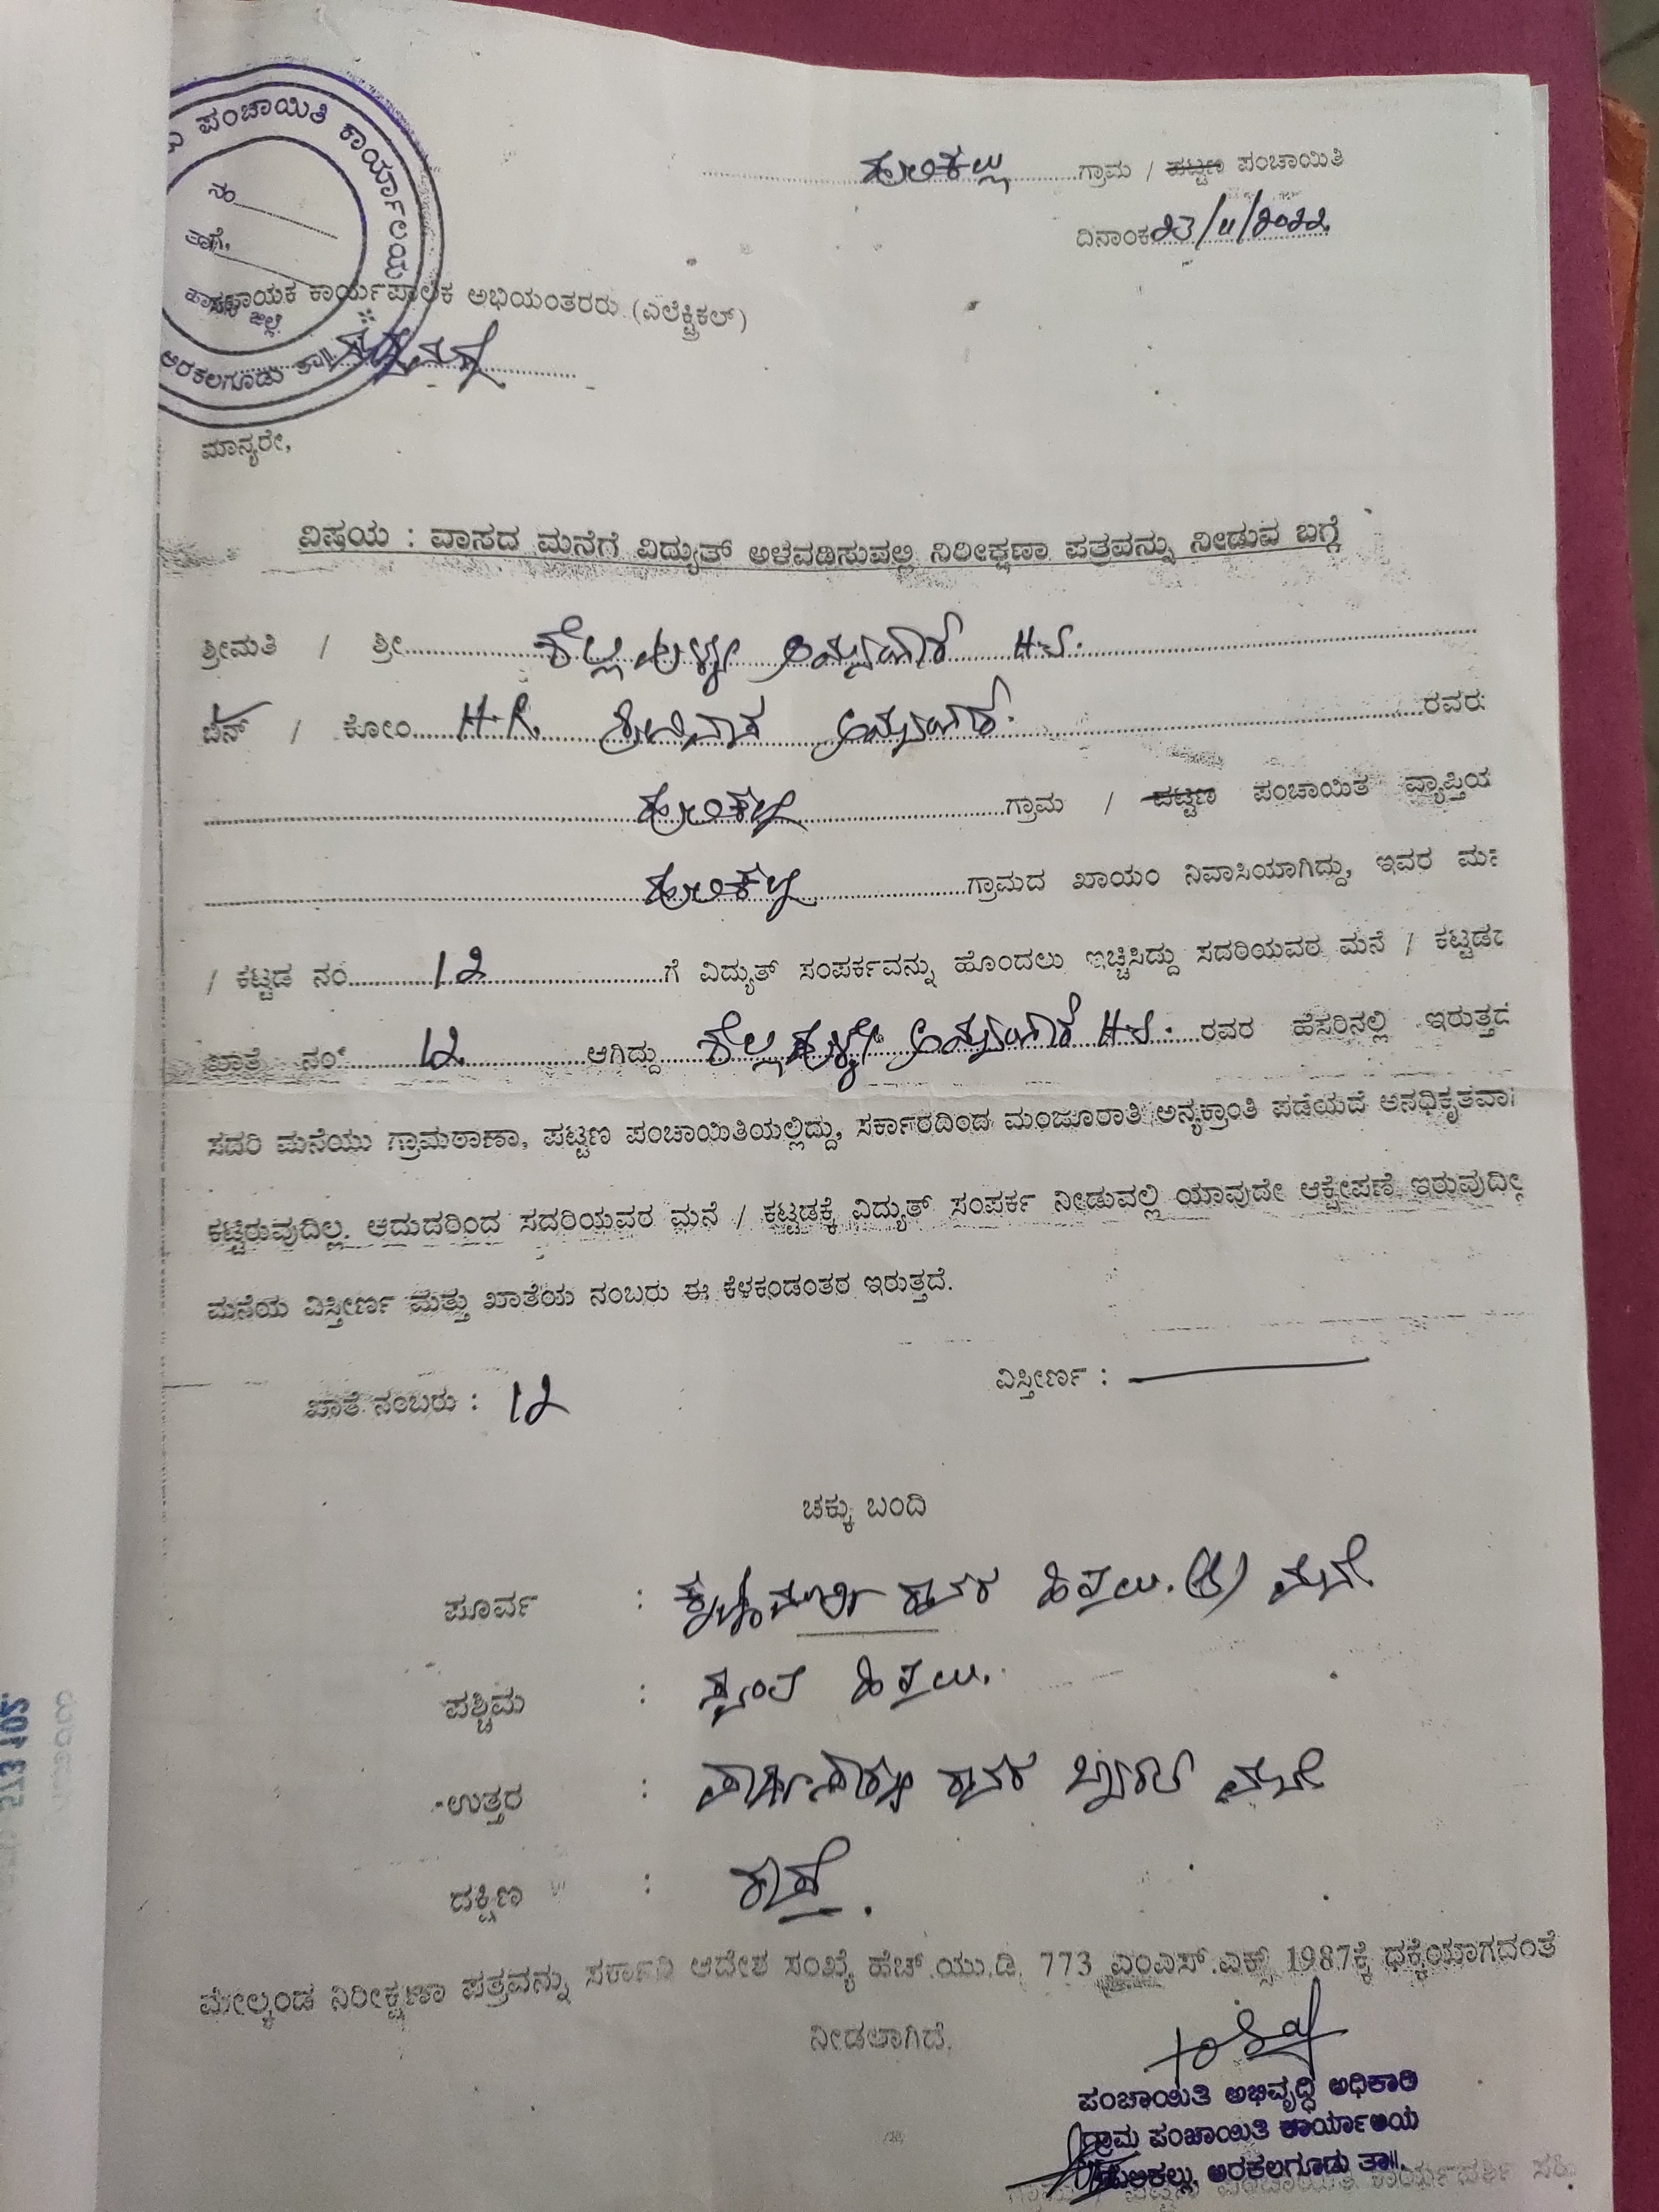 ಪಂಚಾಯಿತಿ ಕಾರ್ಯಾಲಯ
ನಂ
ತಾರೀ.
ಹಾಸನ ಜಿಲ್ಲೆ
ಅರಕಲಗೂಡು ತಾ॥
ಹುಲಿಕಲ್ಲು ಗ್ರಾಮ / ಪಟ್ಟಣ ಪಂಚಾಯಿತಿ
ದಿನಾಂಕ 23/11/2022
ಸಹಾಯಕ ಕಾರ್ಯಪಾಲಕ ಅಭಿಯಂತರರು (ಎಲೆಕ್ಟ್ರಿಕಲ್)
ಮಾನ್ಯರೇ,
ವಿಷಯ : ವಾಸದ ಮನೆಗೆ ವಿದ್ಯುತ್ ಅಳವಡಿಸುವಲ್ಲಿ ನಿರೀಕ್ಷಣಾ ಪತ್ರವನ್ನು ನೀಡುವ ಬಗ್ಗೆ
ಶ್ರೀಮತಿ / ಶ್ರೀ ಅಯ್ಯಂಗಾರ್ H.S.
ಬಿನ್ / ಕೋಂ H.R. ಶ್ರೀನಿವಾಸ ಅಯ್ಯಂಗಾರ್. ರವರು
ಹುಲಿಕಲ್ಲು ಗ್ರಾಮ / ಪಟ್ಟಣ ಪಂಚಾಯಿತ ವ್ಯಾಪ್ತಿಯ
ಹುಲಿಕಲ್ಲು ಗ್ರಾಮದ ಖಾಯಂ ನಿವಾಸಿಯಾಗಿದ್ದು, ಇವರ
/ ಕಟ್ಟಡ ನಂ 12 ಗೆ ವಿದ್ಯುತ್ ಸಂಪರ್ಕವನ್ನು ಹೊಂದಲು ಇಚ್ಛಿಸಿದ್ದು ಸದರಿಯವರ ಮನೆ / ಕಟ್ಟಡದ
ಖಾತೆ ನಂ 12 ಆಗಿದ್ದು ಅಯ್ಯಂಗಾರ್ H.S. ರವರ ಹೆಸರಿನಲ್ಲಿ ಇರುತ್ತದೆ
ಸದರಿ ಮನೆಯು ಗ್ರಾಮಠಾಣಾ, ಪಟ್ಟಣ ಪಂಚಾಯಿತಿಯಲ್ಲಿದ್ದು, ಸರ್ಕಾರದಿಂದ ಮಂಜೂರಾತಿ ಅನ್ಯಕ್ರಾಂತಿ ಪಡೆಯದೆ ಅನಧಿಕೃತವಾಗಿ
ಕಟ್ಟಿರುವುದಿಲ್ಲ. ಆದುದರಿಂದ ಸದರಿಯವರ ಮನೆ / ಕಟ್ಟಡಕ್ಕೆ ವಿದ್ಯುತ್ ಸಂಪರ್ಕ ನೀಡುವಲ್ಲಿ ಯಾವುದೇ ಆಕ್ಷೇಪಣೆ ಇರುವುದಿಲ್ಲ
ಮನೆಯ ವಿಸ್ತೀರ್ಣ ಮತ್ತು ಖಾತೆಯ ನಂಬರು ಈ ಕೆಳಕಂಡಂತರ ಇರುತ್ತದೆ.
ಖಾತೆ ನಂಬರು : 12 ವಿಸ್ತೀರ್ಣ :
ಚಕ್ಕು ಬಂದಿ
ಪೂರ್ವ : ಕೃಷ್ಣಮೂರ್ತಿ ರವರ ಹಿತ್ತಲು. (&) ಮನೆ
ಪಶ್ಚಿಮ : ಸ್ವಂತ ಹಿತ್ತಲು.
ಉತ್ತರ : ರವರ ಮನೆ
ದಕ್ಷಿಣ : ರಸ್ತೆ.
ಮೇಲ್ಕಂಡ ನಿರೀಕ್ಷಣಾ ಪತ್ರವನ್ನು ಸರ್ಕಾರಿ ಆದೇಶ ಸಂಖ್ಯೆ ಹೆಚ್.ಯು.ಡಿ. 773 ಎಂಎಸ್.ಎಕ್ಸ್ 1987ಕ್ಕೆ ಧಕ್ಕೆಯಾಗದಂತೆ
ನೀಡಲಾಗಿದೆ.
ಪಂಚಾಯಿತಿ ಅಭಿವೃದ್ಧಿ ಅಧಿಕಾರಿ
ಗ್ರಾಮ ಪಂಚಾಯಿತಿ ಕಾರ್ಯಾಲಯ
ಹುಲಿಕಲ್ಲು, ಅರಕಲಗೂಡು ತಾ॥.